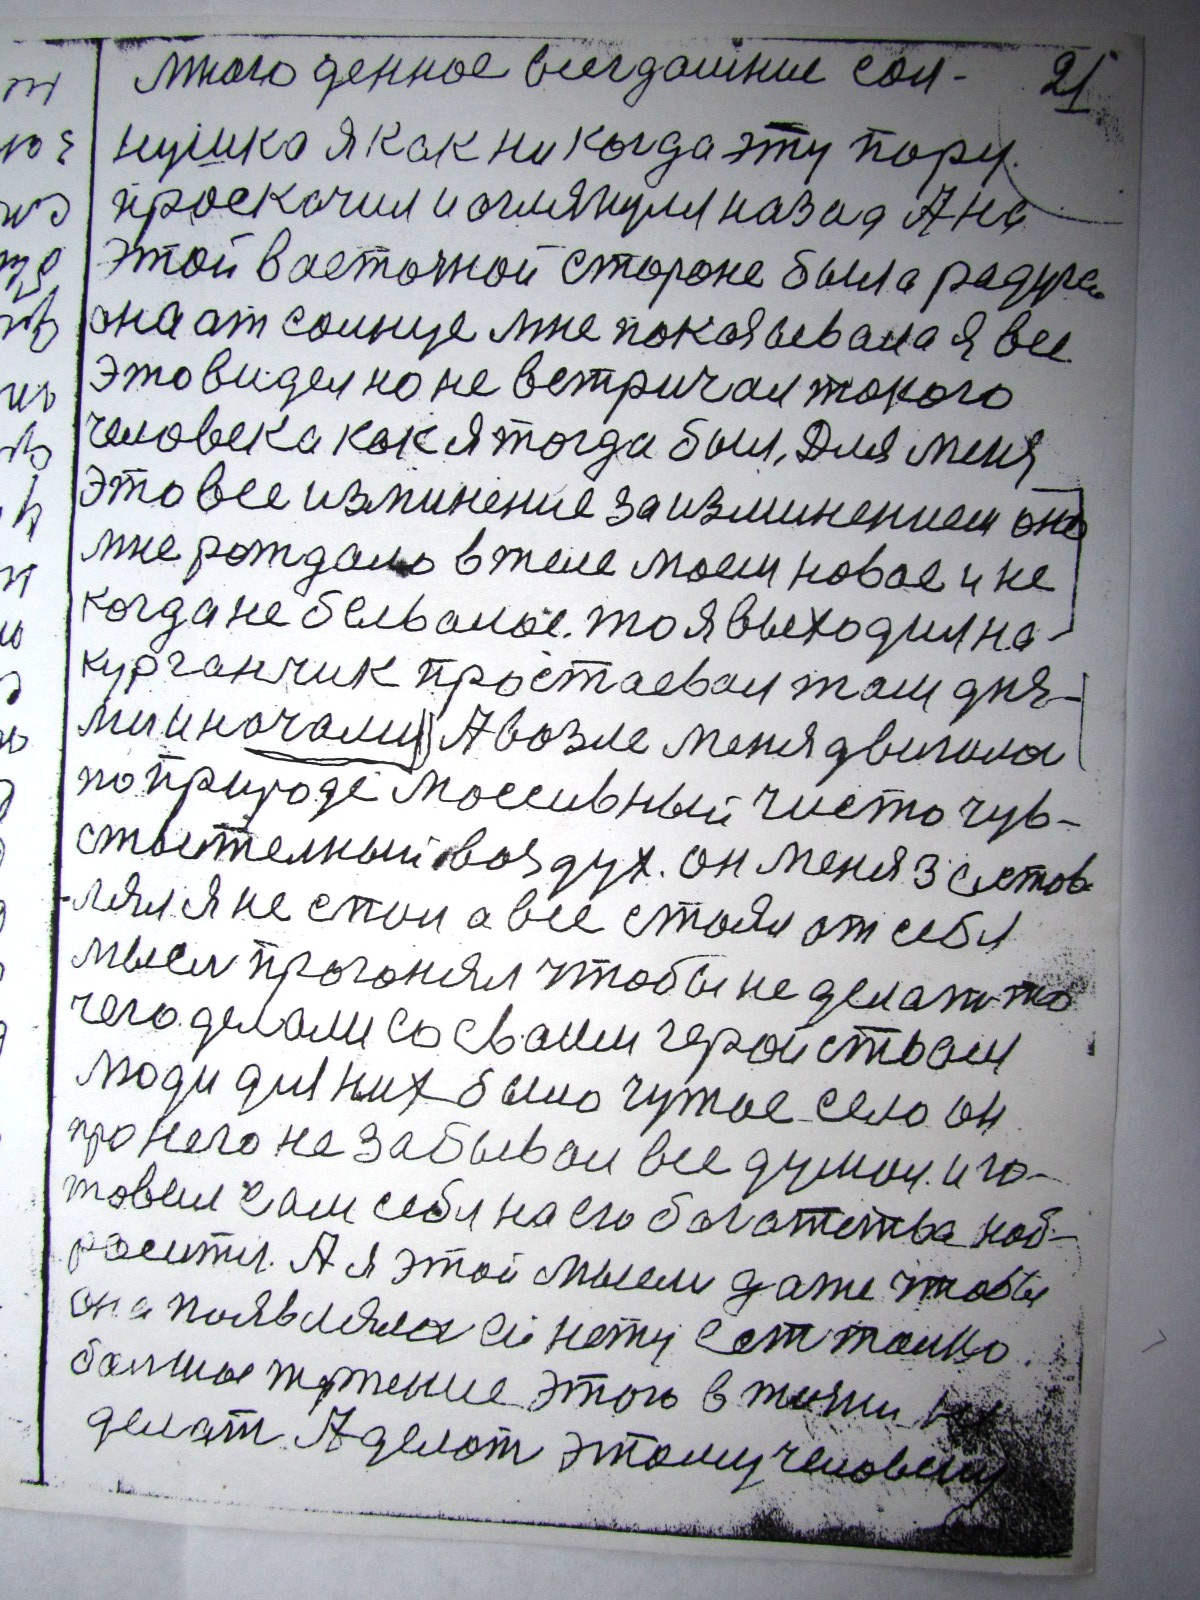 много денное всегдашние сол- 21
нушко я как ни когда эту пору
проскочил и оглянулся назад А на
этой васточной стороне была радуга
она от солнце мне показывала я все
это видел но не встричал такого
человека как я тогда был, Для меня
это все изминение за изминением оно
мне рождало в теле моем новое и не
когда не бывалое. то я выходил на
курганчик простаевал там дня-
ми и ночами А возле меня двигался
по природе массивный чисто чув-
ствителный воздух. он меня заставв
лял я не спал а все стоял от себя
мысли прогонял чтобы не делат то
чего делали со своим геройством
люди для них было чужое село он
про него не забывал все думал. и го-
товил сам себя на его богатства наб-
роситя. А я этой мысли даже чтобы
она появлялася нету Ест толко
болшое тяжение этого в жизни не
делат А делат этому человеку